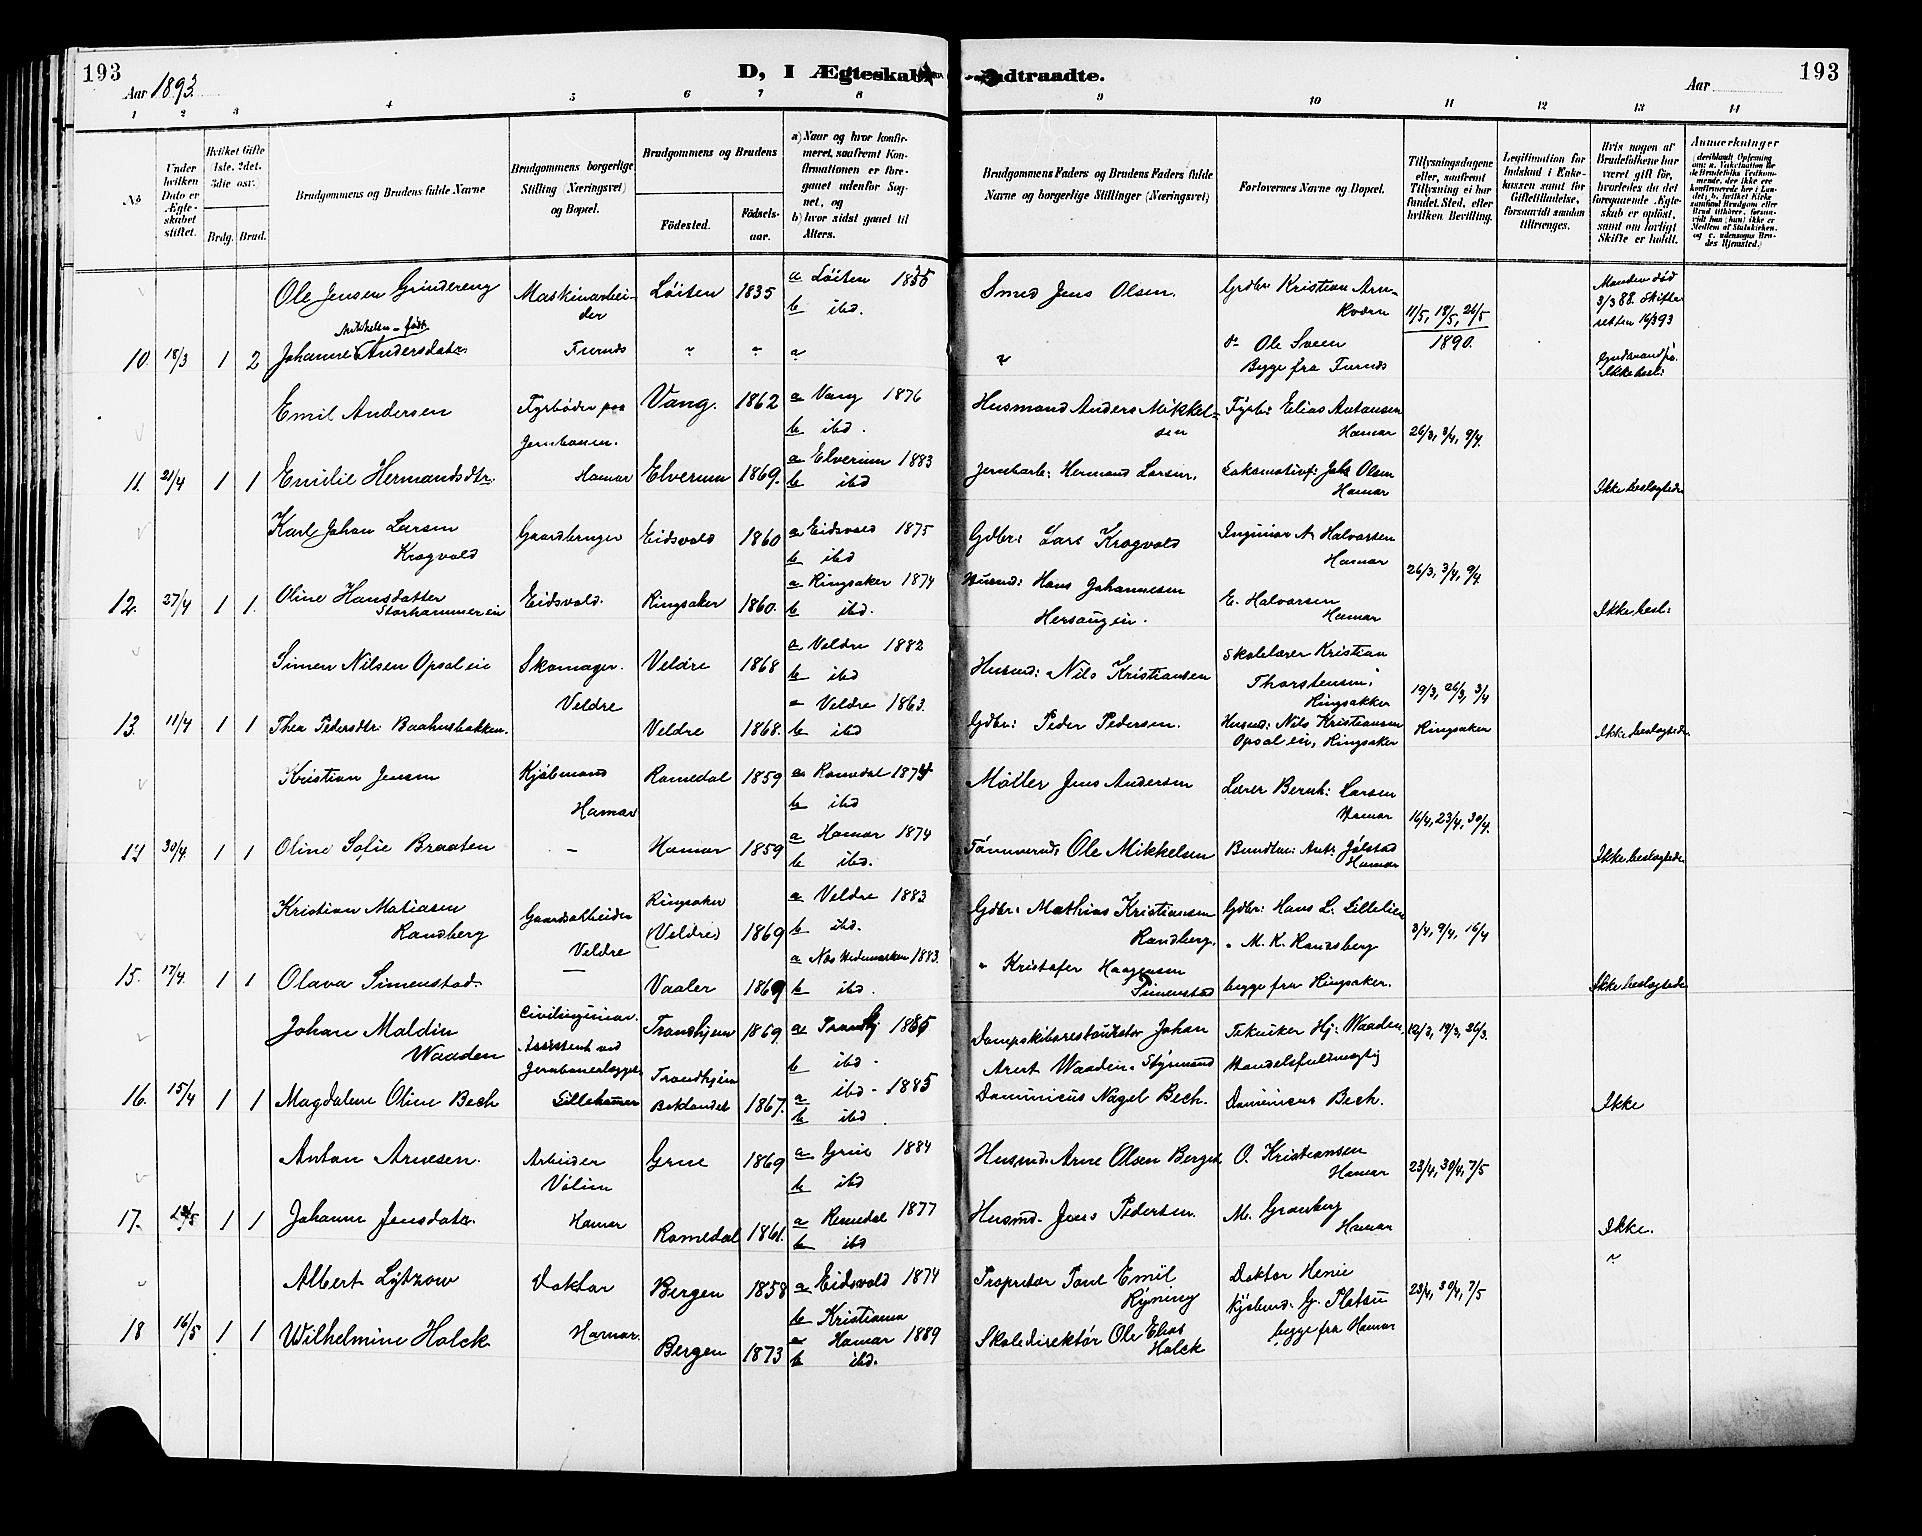 193
D, I Ægteskab Indtraadte.
193
Aar 1893.
Aar
1 2 3 4 5 6 7 8 9 10 11 12 13 14
No
Under hvilken Dato er Ægteskabet stiftet.
Hvilket Gifte 1ste, 2det, 3die osv.
Brdg. Brud.
Brudgommens og Brudens fulde Navne
Brudgommens borgerlige Stilling (Næringsvei) og Bopæl.
Brudgommens og Brudens
Födested.
Födselsaar.
a) Naar og hvor konfirmeret, saafremt Konfirmationen er foregaaet udenfor Sognet, og
b) hvor sidst gaaet til Alters.
Brudgommens Faders og Brudens Faders fulde Navne og borgerlige Stillinger (Næringsvei)
Forlovernes Navne og Bopæl.
Tillysningsdagene eller, saafremt Tillysning ei har fundet Sted, efter hvilken Bevilling.
Legitimation for Indskud i Enkekassen samt for Giftetilladelse, forsaavidt saadan tiltrænges.
Hvis nogen af Brudefolkene har været gift før, hvorledes da det foregaaende Ægteskab er oplöst, samt om lovligt Skifte er holdt.
Anmærkninger
Ole Jensen Grindereng Maskinarbeider Löiten 1835 a Löiten 1855 b ibd. Smed Jens Olsen. Grdbr Kristian Arn- Kværn 11/5, 18/5, 26/5 1890. Manden död 3/3 88. Skifteretten 16/3 93
10. 18/3 1 2 Johanne Andersdatr. Furnes " " " " Ole Sveen Begge fra Furnes Ikke besl:
Emil Andersen Fyrböder paa Jernbanen. Vang. 1862 a Vang 1876 b ibd. Husmand Anders Mikkelsen Fyrb: Elias Antonsen Hamar 26/3, 3/4, 9/4.
11. 21/4 1 1 Emilie Hermandsdtr. Hamar Elverum 1869. a Elverum 1883 b ibd Jernbarb: Hermand Larsen. Lokomotivf: Johs Olsen Hamar Ikke beslegtede
Karl Johan Larsen Krogvold Gaardbruger Eidsvold 1860 a Eidsvold 1875 b ibd Gdbr: Lars Krogvold Ingeniør A Halvorsen Hamar 26/3, 3/4, 9/4.
12. 27/4 1 1. Oline Hansdatter Storhammereie Eidsvold. Ringsaker 1860. a Ringsaker 1874 b ibd. Husmd: Hans Johannesen Hersougeie. E. Halvorsen Hamar Ikke besl:
Simen Nilsen Opsaleie Skomager. Veldre Veldre 1868 a Veldre 1882 b ibd Husmd: Nils Kristiansen Skolelærer Kristian Thorstensen, Ringsaker 19/3, 26/3, 3/4 Ringsaker
13. 11/4 1 1 Thea Pedersdtr: Baahusbakken. Veldre 1868. a Veldre 1863. b ibd Gdbr: Peder Pedersen. Husmd: Nils Kristiansen Opsaleie, Ringsaker Ikke beslegtede
Kristian Jensen Kjöbmand Hamar Romedal 1859 a Romedal 1874 b ibd Möller Jens Andersen Lærer Bernh: Larsen Hamar 16/4, 23/4, 30/4.
14 30/4. 1 1 Oline Sofie Braaten - Hamar 1859 a Hamar 1874 b ibd. Tömmermd: Ole Mikkelsen Bundtm: Ant: Jølstad Hamar Ikke beslegtede
Kristian Matiasen Randberg Gaardarbeider Veldre Ringsaker (Veldre) 1869 a Veldre 1883 b ibd. Gdbr: Mathias Kristiansen Randberg. Gdbr: Hans L. Lillelien " M. K. Randsberg 3/4, 9/4, 16/4
15. 17/4. 1 1 Olava Simenstad. - Vaaler 1869 a Næs Hedemarken 1883. b ibd. " Kristofer Haagensen Simenstad begge fra Ringsaker. Ikke beslegtede
Johan Maldin Waaden Civilingeniør. Assistent ved Jernbaneanlægget Trondhjem 1869 a Trondhj 1885 b ibd. Dampskibsrestauratør Johan Arnt Waaden. Tekniker Hj: Waaden. 12/3, 19/3, 26/3.
16. 15/4 1 1 Magdalene Oline Bech Lillehamer Trondhjem Baklandet 1867. a ibd - 1885 b ibd. Styrmand Dominicus Nagel Bech. Handelsfuldmægtig Dominicus Bech. Ikke
Anton Arnesen. Arbeider Volien Grue 1869 a Grue 1884 b ibd Husmd. Arne Olsen Berget O. Kristiansen Hamar 23/4, 30/4, 7/5
17. 1 1 Johanne Jensdatr. Hamar Romedal 1861. a Romedal 1877 b ibd Husmd. Jens Pedersen. M. Granberg Hamar Ikke.
Albert Lytzow Doktor Bergen 1858 a Eidsvold 1874 b Kristiania Proprietær Paul Emil Rynning Doktor Henie 23/4, 30/4, 7/5 "
18 16/5 1 1 Wilhelmine Holck Hamar. Bergen 1873 a Hamar 1889 b ibd. Skoledirektör Ole Elias Holck G. Platou begge fra Hamar